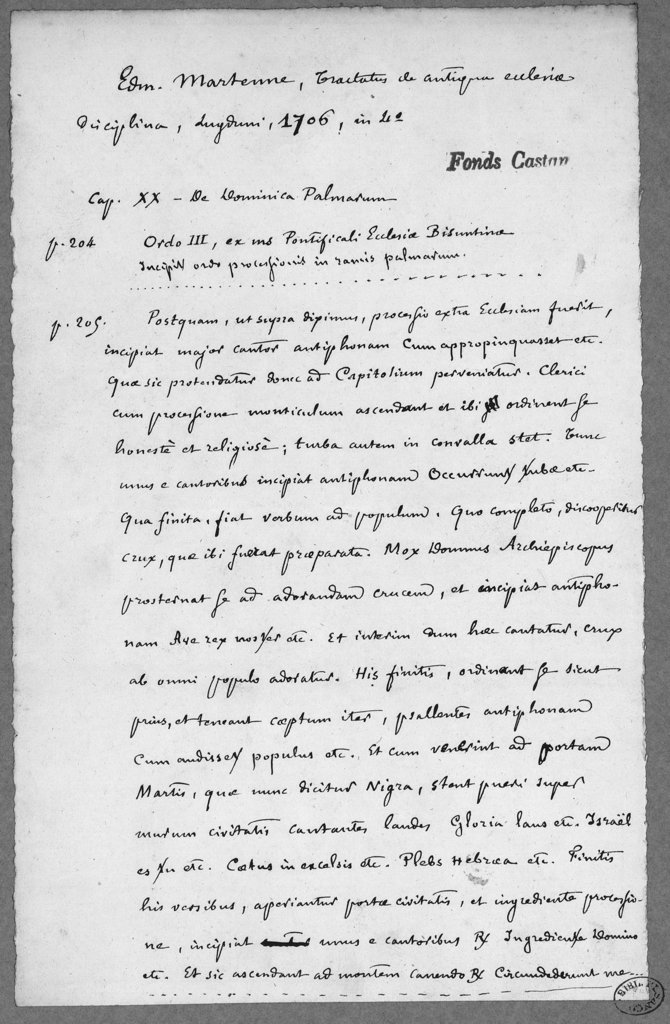 Edm. Martenne, Tractatus de antiqua ecclesiæ
Disciplina, Lugduni, 1706, in 4º
Fonds Castan
Cap. XX — De Dominica Palmarum
p. 204 Ordo III, ex ms Pontificali Ecclesiæ Bisuntinæ
Incipit ordo processionis in ramis palmarum.
p. 205. Postquam, ut supra diximus, processio extra Ecclesiam fuerit,
incipiat major cantor antiphonam Cum appropinquasset etc.
Quæ sic protendatur donec ad Capitolium perveniatur. Clerici
cum processione monticulum ascendant et ibi ordinent se
honestè et religiosè; turba autem in convalla stet. Tunc
unus e cantoribus incipiat antiphonam Occurrunt turbæ etc.
Qua finita, fiat verbum ad populum. Quo completo, discooperitur
crux, quæ ibi fuerat præparata. Mox Domnus Archiepiscopus
prosternat se ad adorandam crucem, et incipiat antipho-
nam Ave rex noster etc. Et interim dum hæc cantatur, crux
ab omni populo adoratur. His finitis, ordinent se sicut
prius, et teneant cæptum iter, psallentes antiphonam
Cum audisset populus etc. Et cum venerint ad portam
Martis, quæ nunc dicitur Nigra, stent pueri super
murum civitatis cantantes laudes Gloria laus etc. Israël
es tu etc. Cœtus in excelsis etc. Plebs Hebræa etc. Finitis
his versibus, aperiantur portæ civitatis, et ingrediente processio-
ne, incipiat unus e cantoribus ℟ Ingrediente Domino
etc. Et sic ascendant ad montem canendo ℟ Circumdederunt me...